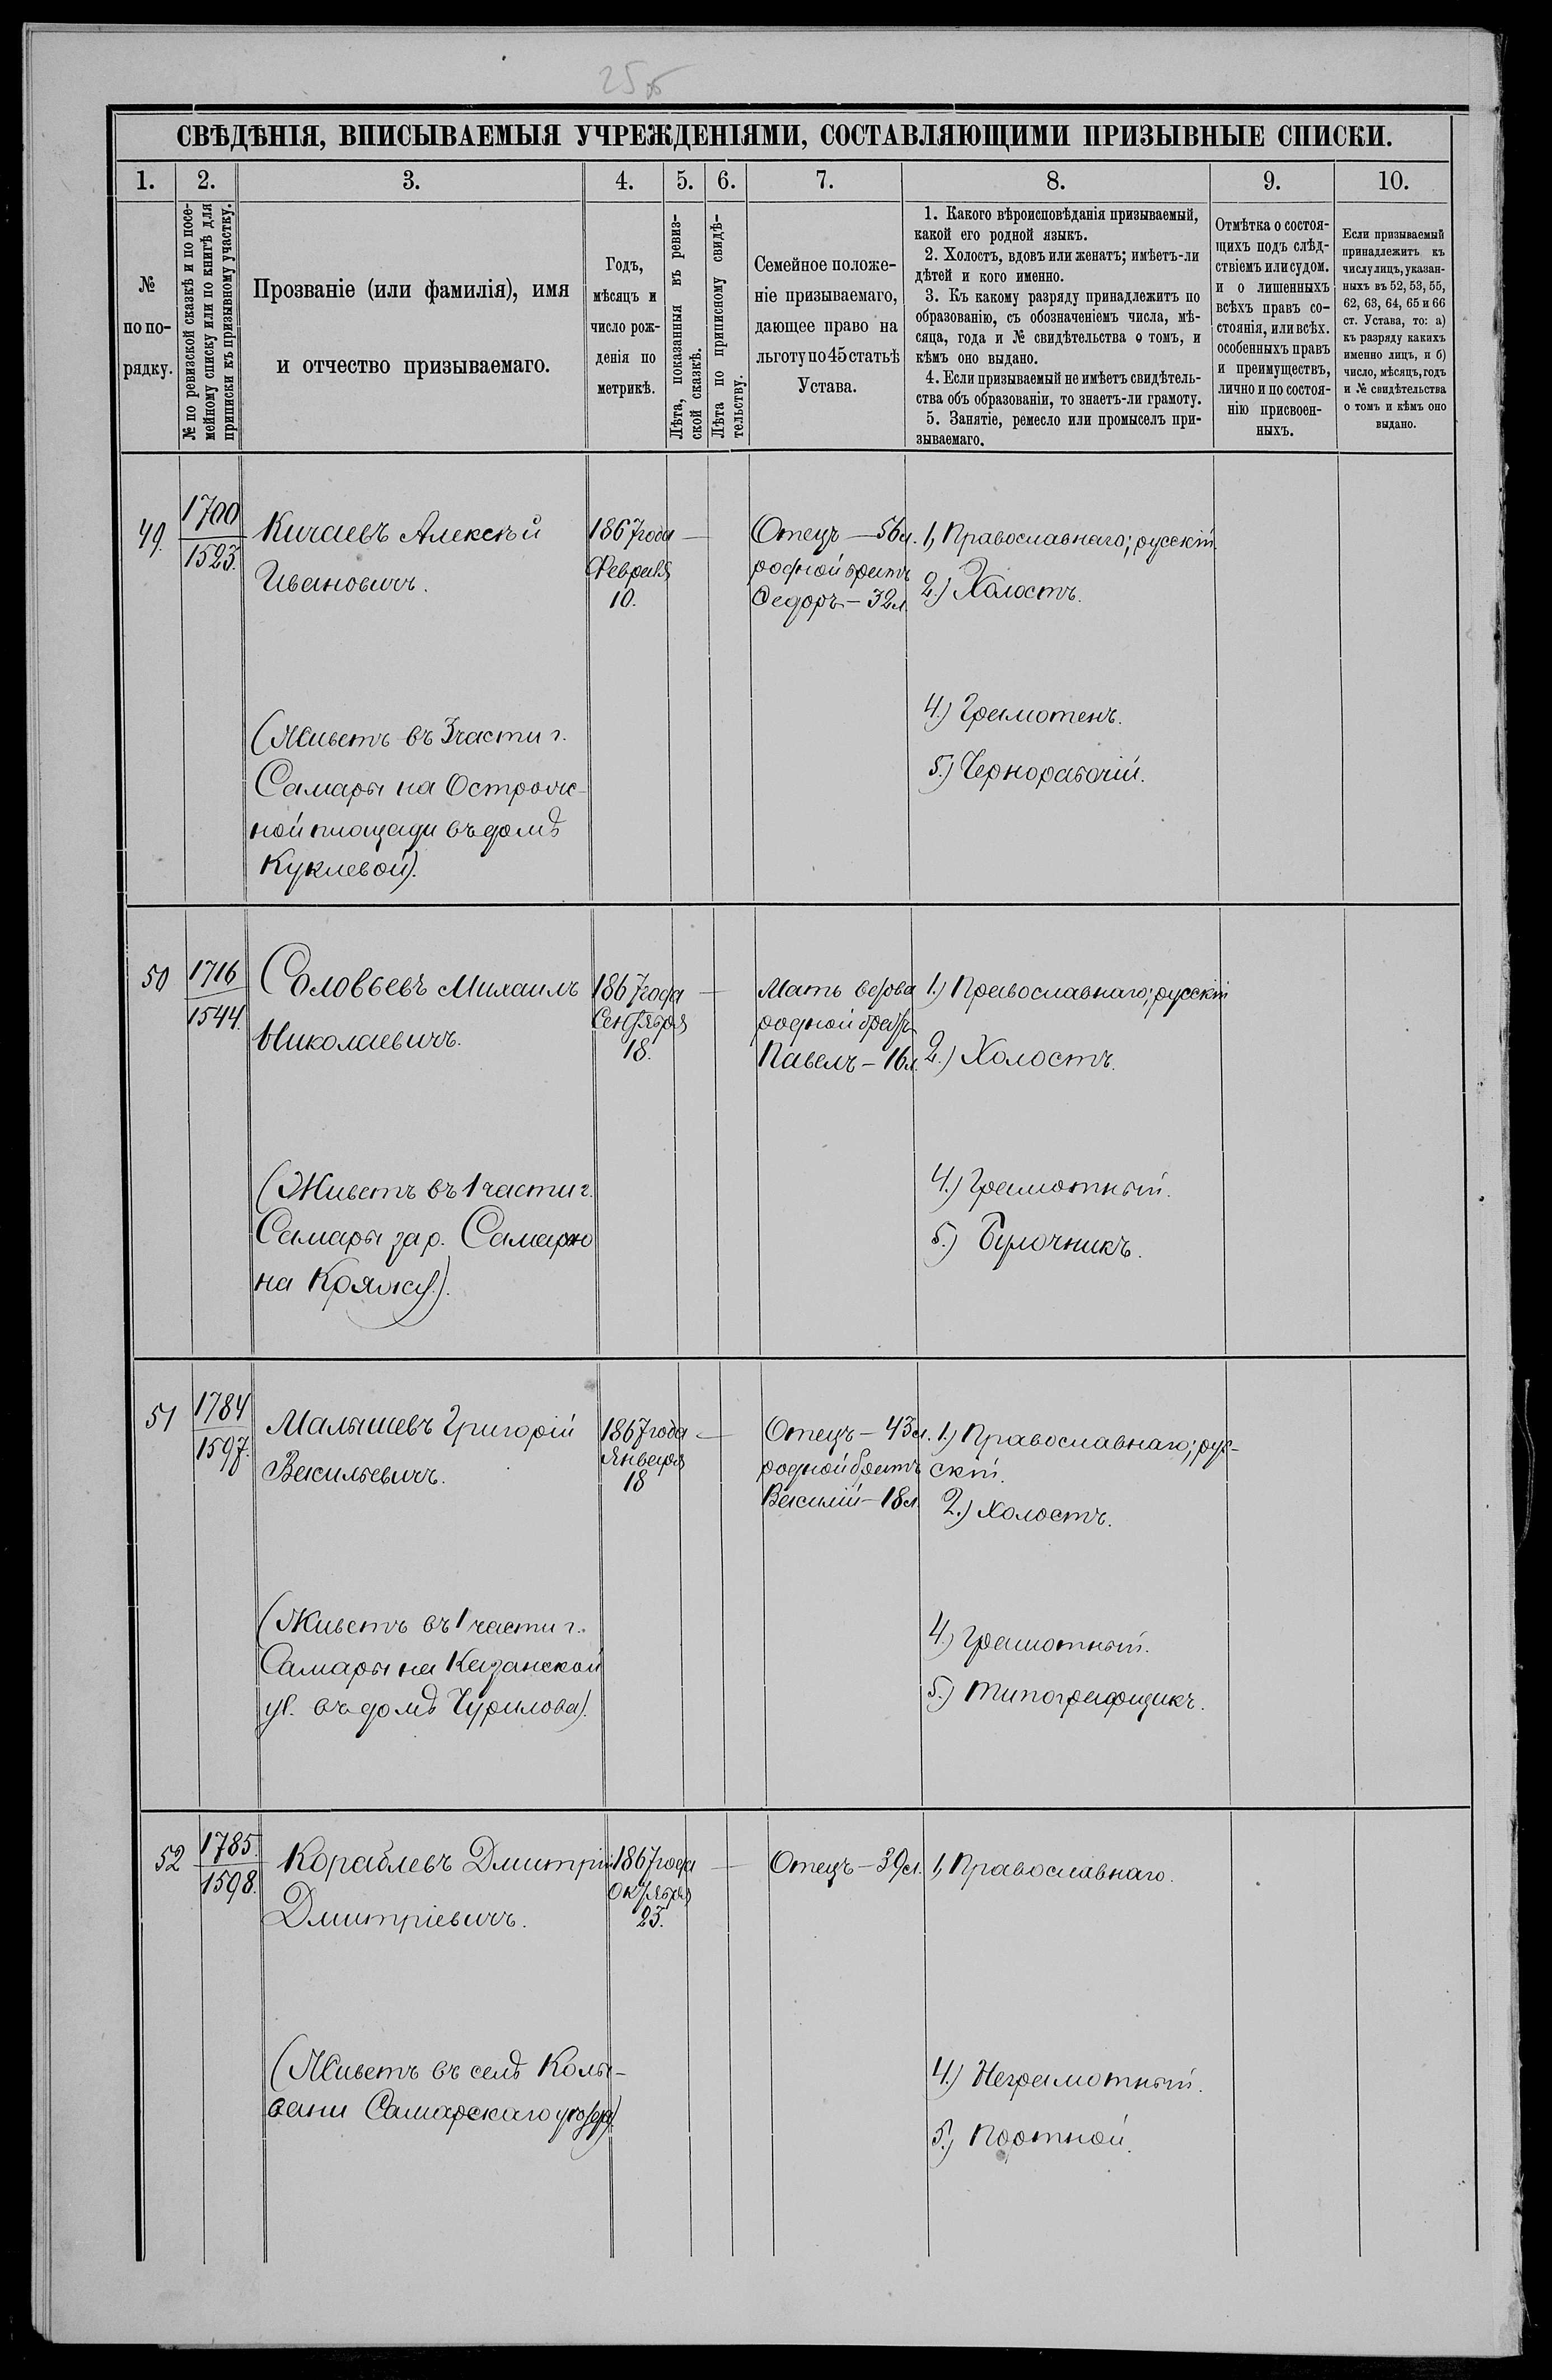 25об
СВѢДѢНІЯ, ВПИСЫВАЕМЫЯ УЧРЕЖДЕНІЯМИ, СОСТАВЛЯЮЩИМИ ПРИЗЫВНЫЕ СПИСКИ.
1. 2. 3. 4. 5. 6. 7. 8. 9. 10.
№
по по-
рядку.
№ по ревизской сказкѣ и по посе-
мейному списку или по книгѣ для
приписки къ призывному участку.
Прозваніе (или фамилія), имя
и отчество призываемаго.
Годъ,
мѣсяцъ и
число рож-
денія по
метрикѣ.
Лѣта, показанныя въ ревиз-
ской сказкѣ.
Лѣта по приписному свидѣ-
тельству.
Семейное положе-
ніе призываемаго,
дающее право на
льготу по 45 статьѣ
Устава.
1. Какого вѣроисповѣданія призываемый,
какой его родной языкъ.
2. Холостъ, вдовъ или женатъ; имѣетъ-ли
дѣтей и кого именно.
3. Къ какому разряду принадлежитъ по
образованію, съ обозначеніемъ числа, мѣ-
сяца, года и № свидѣтельства о томъ, и
кѣмъ оно выдано.
4. Если призываемый не имѣетъ свидѣтель-
ства объ образованіи, то знаетъ-ли грамоту.
5. Занятіе, ремесло или промыселъ при-
зываемаго.
Отмѣтка о состоя-
щихъ подъ слѣд-
ствіемъ или судом.
и о лишенныхъ
всѣхъ правъ со-
стоянія, или всѣх.
особенныхъ правъ
и преимуществъ,
лично и по состоя-
нію присвоен-
ныхъ.
Если призываемый
принадлежитъ къ
числу лицъ, указан-
ныхъ въ 52, 53, 55,
62, 63, 64, 65 и 66
ст. Устава, то: а)
къ разряду какихъ
именно лицъ, и б)
число, мѣсяцъ, годъ
и № свидѣтельства
о томъ и кѣмъ оно
выдано.
49.
1700
1523.
Кичаевъ Алексѣй
Ивановичъ.
(Живетъ въ 3 части г.
Самары на Острож-
ной площади въ домѣ
Куклевой).
1867 года
Февраля
10.
—
Отецъ — 56 л.
родной братъ
Федоръ — 32 л.
1, Православнаго; русскій.
2.) Холостъ.
4.) Грамотенъ.
5.) Чернорабочій.
50
1716
1544.
Соловьевъ Михаилъ
Николаевичъ.
(Живетъ въ 1 части г.
Самары за р. Самарою
на Кряжу).
1867 года
Сентября
18.
—
Мать вдова
родной братъ
Павелъ — 16 л.
1.) Православнаго; русскій
2.) Холостъ.
4.) Грамотный.
5.) Булочникъ.
51
1784
1597.
Малышевъ Григорій
Васильевичъ.
(Живетъ въ 1 части г.
Самары на Казанской
ул. въ домѣ Чурилова).
1867 года
Января
18
—
Отецъ — 43 л.
родной братъ
Василій — 18 л.
1.) Православнаго; рус-
скій.
2.) Холостъ.
4.) Грамотный.
5.) Типографщикъ.
52
1785.
1598.
Кораблевъ Дмитрій
Дмитріевичъ.
(Живетъ въ селѣ Колы-
вани Самарскаго уѣзда).
1867 года
Октября
23.
—
Отецъ — 39 л.
1, Православнаго.
4.) Неграмотный.
5.) Портной.